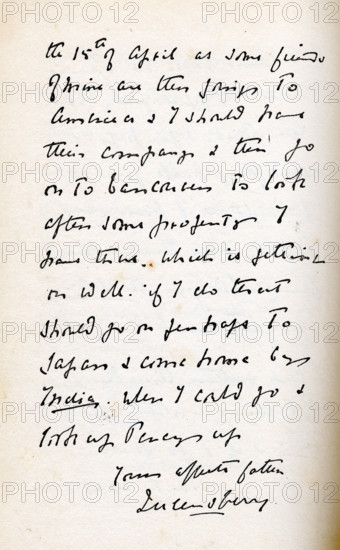 the 15th of April as some friends
of mine are then going to
America & I should have
their company & then go
on to Vancouver to look
after some property I
have there. which is getting
on well. if I do that
should go on perhaps to
Japan & come home by
India. when I could go &
look up Percy
Yours affecte father
Queensberry.